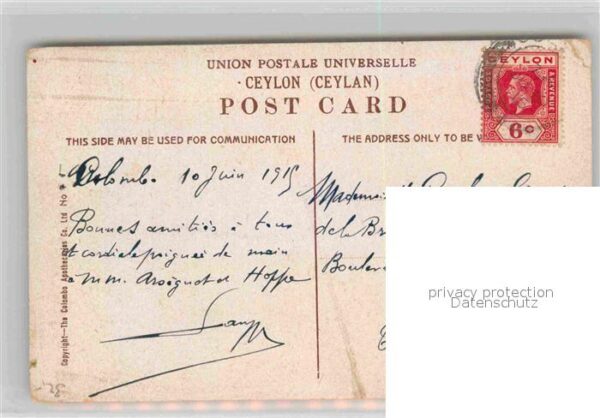 UNION POSTALE UNIVERSELLE
CEYLON (CEYLAN)
POST CARD
THIS SIDE MAY BE USED FOR COMMUNICATION
THE ADDRESS ONLY TO BE
CEYLON
POSTAGE
& REVENUE
6c
Colombo 10 Juin 1915
Bonnes amitiés à tous
et cordiale poignée de main
à MM. et Hoppe
de la
privacy protection
Datenschutz
Copyright—The Colombo Apothecaries Co. Ltd No